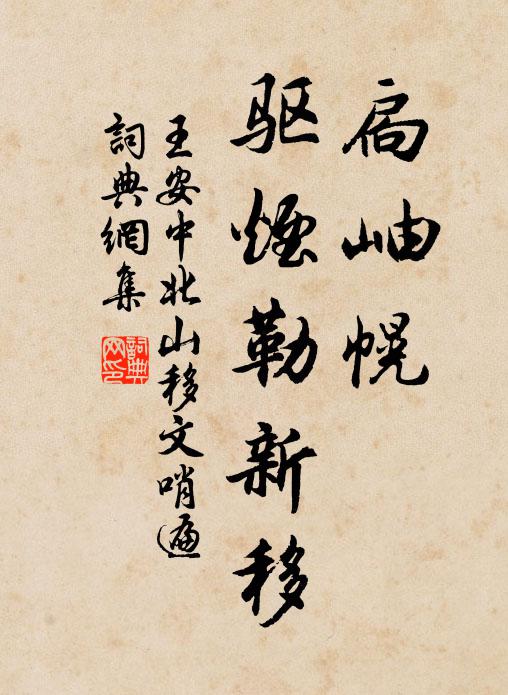 扄岫幌
驱煙勒新移
王安中北山移文哨遍
詞典網集
詞典
网印